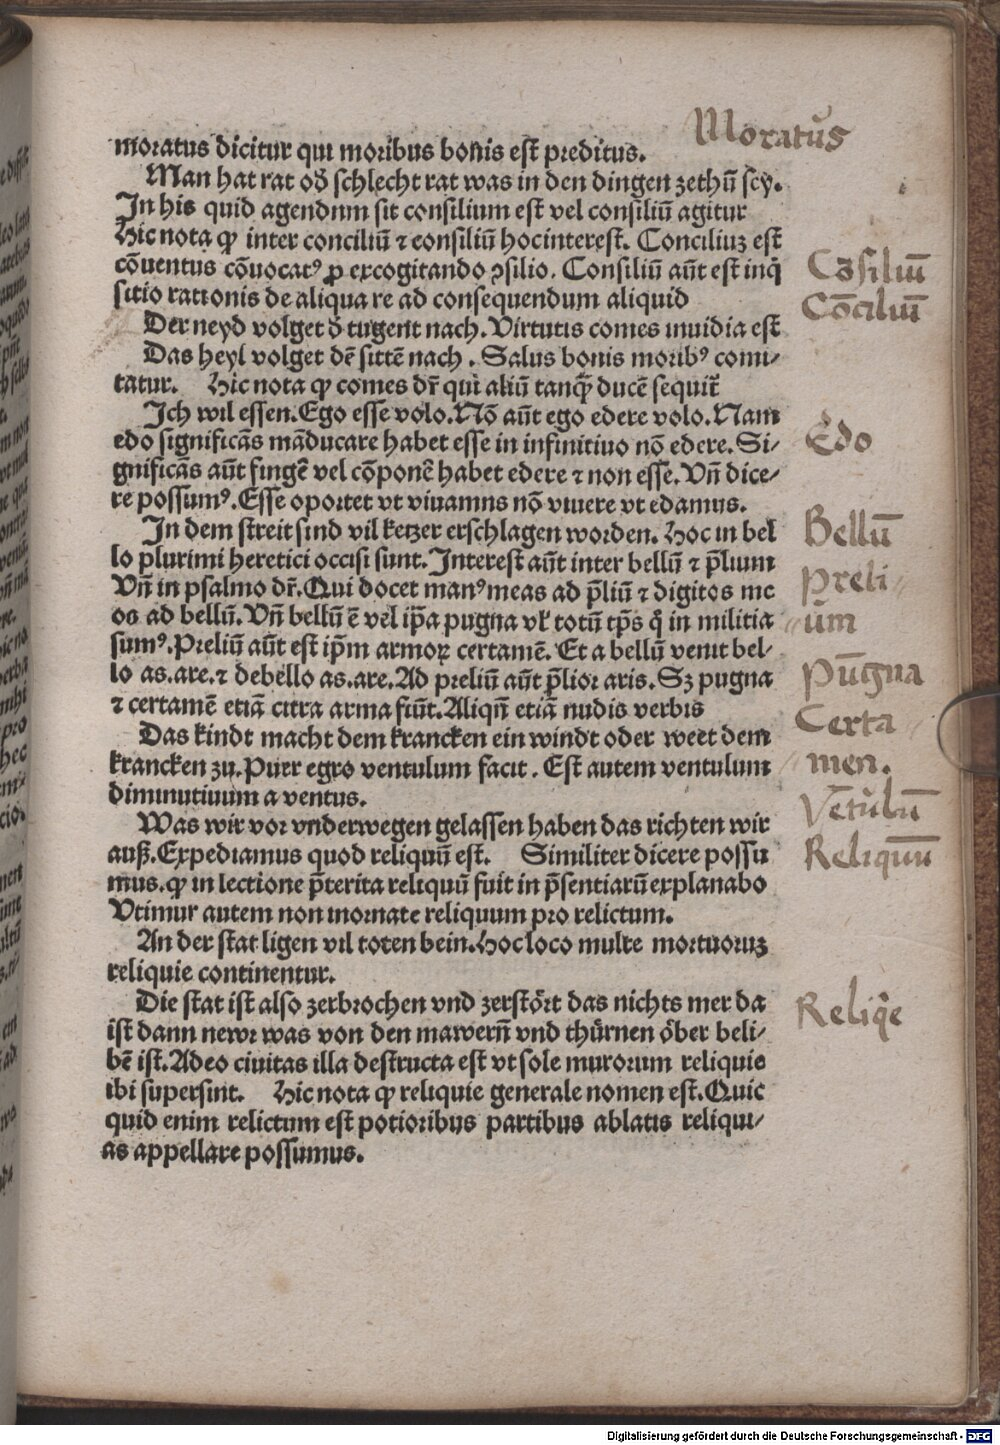 Moratus
moratus dicitur qui moribus bonis est preditus.
Man hat rat od̄ schlecht rat was in den dingen zethū sey.
In his quid agendum sit consilium est vel consiliū agitur
Hic nota ꝙ inter conciliū ⁊ consiliū hocinterest. Conciliuʒ est
cōuentus cōuocatꝰ ꝓ excogitando ↄsilio. Consiliū aūt est inq̄
sitio rationis de aliqua re ad consequendum aliquid
Der neyd volget d̄ tugent nach. Virtutis comes inuidia est
Das heyl volget dē sittē nach. Salus bonis moribꝰ comi⸗
tatur. Hic nota ꝙ comes dr̄ qui aliū tanq̄ ducē sequit̄
Ich wil essen. Ego esse volo. Nō aūt ego edere volo. Nam
edo significās māducare habet esse in infinitiuo nō edere. Si⸗
gnificās aūt fingē vel cōponē habet edere ⁊ non esse. Vn̄ dice⸗
re possumꝰ. Esse oportet vt viuamus nō viuere vt edamus.
In dem streit sind vil ketzer erschlagen worden. Hoc in bel
lo plurimi heretici occisi sunt. Interest aūt inter bellū ⁊ p̄lium
Vn̄ in psalmo dr̄. Qui docet manꝰ meas ad p̄liū ⁊ digitos me
os ad bellū. Vn̄ bellū ē vel ip̄a pugna vl̓ totū tp̄s q̄ in militia
sumꝰ. Preliū aūt est ip̄m armoꝝ certamē. Et a bellū venit bel⸗
lo as.are.⁊ debello as.are. Ad preliū aūt p̄lior aris. Sꝫ pugna
⁊ certamē etiā citra arma fiūt. Aliqn̄ etiā nudis verbis
Das kindt macht dem krancken ein windt oder weet dem
krancken zu. Puer egro ventulum facit. Est autem ventulum
diminutiuum a ventus.
Was wir vor vnderwegen gelassen haben das richten wir
auß. Expediamus quod reliquū est. Similiter dicere possu
mus. ꝙ in lectione p̄terita reliquū fuit in p̄sentiarū explanabo
Vtimur autem non inornate reliquum pro relictum.
An der stat ligen vil toten bein. Hoc loco multe mortuoruʒ
reliquie continentur.
Die stat ist also zerbrochen vnd zerstört das nichts mer da
ist dann newr was von den mawern̄ vnd thürnen öber beli⸗
bē ist. Adeo ciuitas illa destructa est vt sole murorum reliquie
ibi supersint. Hic nota ꝙ reliquie generale nomen est. Quic
quid enim relictum est potioribus partibus ablatis reliqui⸗
as appellare possumus.
Cōsiliū
Cōciliū
Edo
Bellū
preli⸗
ūm
Pūgna
Certa
men.
Vētulū
Reliquū
Reliqꝫe
Digitalisierung gefördert durch die Deutsche Forschungsgemeinschaft - DFG